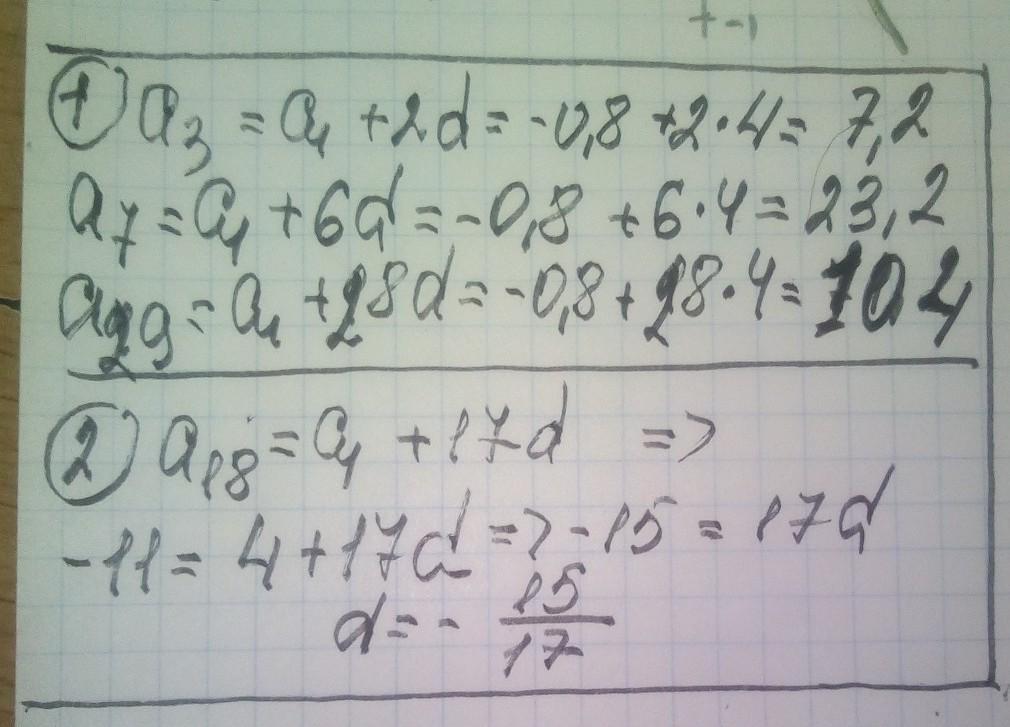 +-1
① a₃ = a₁ + 2d = -0,8 + 2·4 = 7,2
a₇ = a₁ + 6d = -0,8 + 6·4 = 23,2
a₂₉ = a₁ + 28d = -0,8 + 28·4 = 104
② a₁₈ = a₁ + 17d =>
-11 = 4 + 17d => -15 = 17d
d = - 15/17